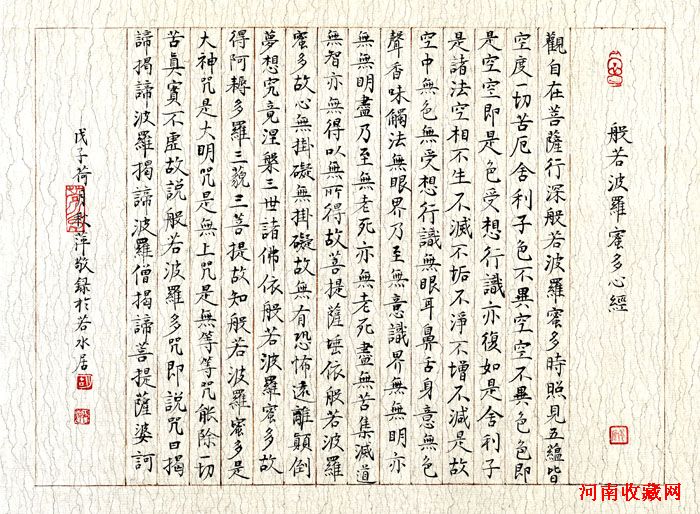 般若波羅蜜多心經
觀自在菩薩行深般若波羅蜜多時照見五蘊皆
空度一切苦厄舍利子色不異空空不異色色即
是空空即是色受想行識亦復如是舍利子
是諸法空相不生不滅不垢不淨不增不減是故
空中無色無受想行識無眼耳鼻舌身意無色
聲香味觸法無眼界乃至無意識界無無明亦
無無明盡乃至無老死亦無老死盡無苦集滅道
無智亦無得以無所得故菩提薩埵依般若波羅
蜜多故心無掛礙無掛礙故無有恐怖遠離顛倒
夢想究竟涅槃三世諸佛依般若波羅蜜多故
得阿耨多羅三藐三菩提故知般若波羅蜜多是
大神咒是大明咒是無上咒是無等等咒能除一切
苦真實不虛故說般若波羅多咒即說咒曰揭
諦揭諦波羅揭諦波羅僧揭諦菩提薩婆訶
戊子荷胡秋萍敬録於若水居
河南收藏网